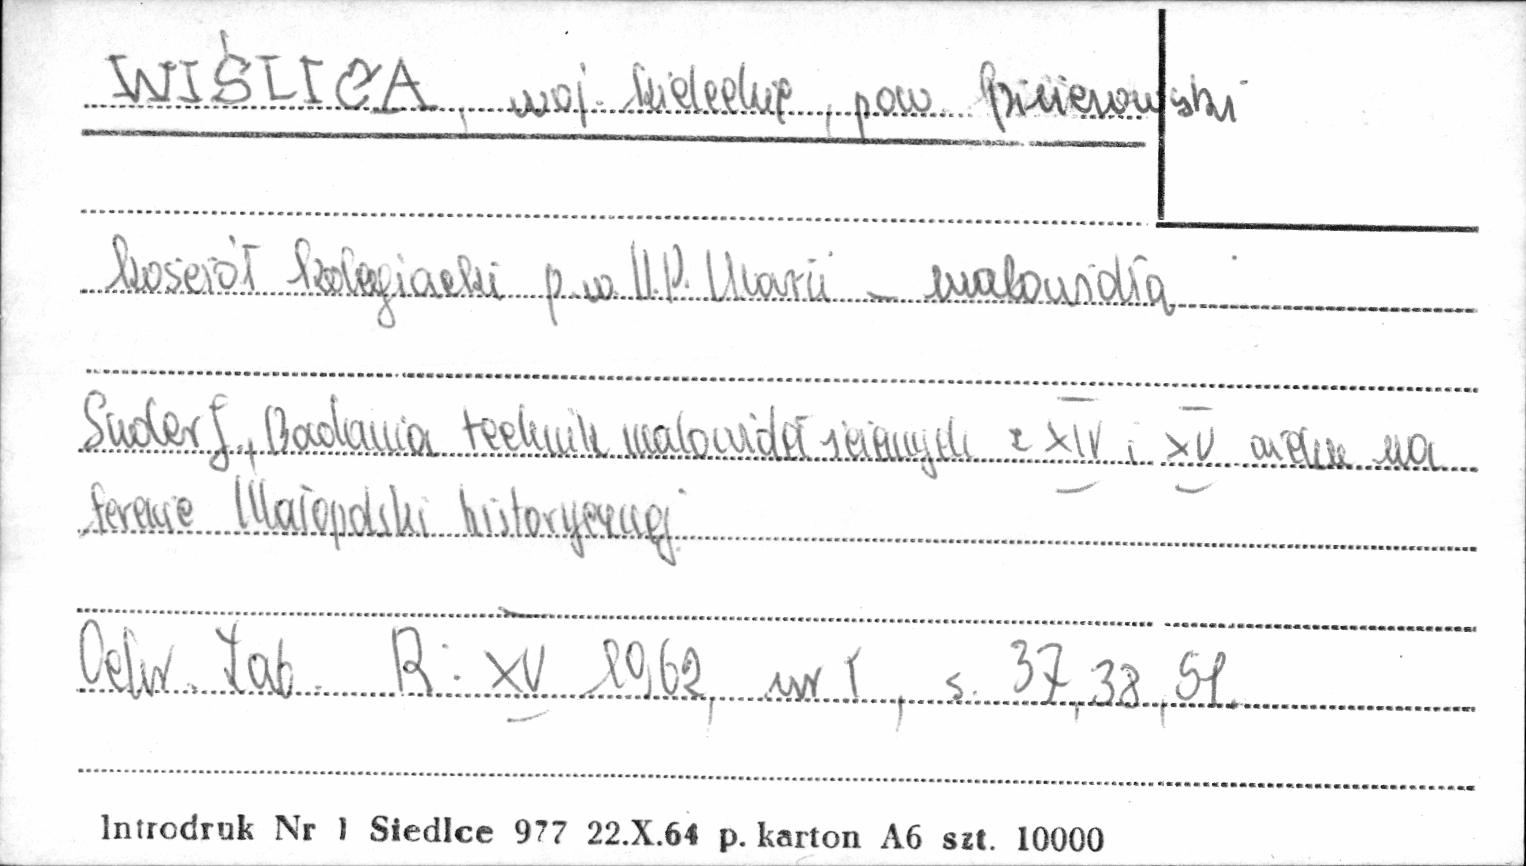 WIŚLICA, woj. kieleckie, pow. pińczowski
kościół kolegiacki p.w. N.P. Marii – malowidła
Suder J., Badania technik malowideł ściennych z XIV i XV wieku na
terenie Małopolski historycznej
Ochr. Zab. R: XV 1962, nr 1, s. 37, 38, 51.
Introdruk Nr 1 Siedlce 977 22.X.64 p. karton A6 szt. 10000